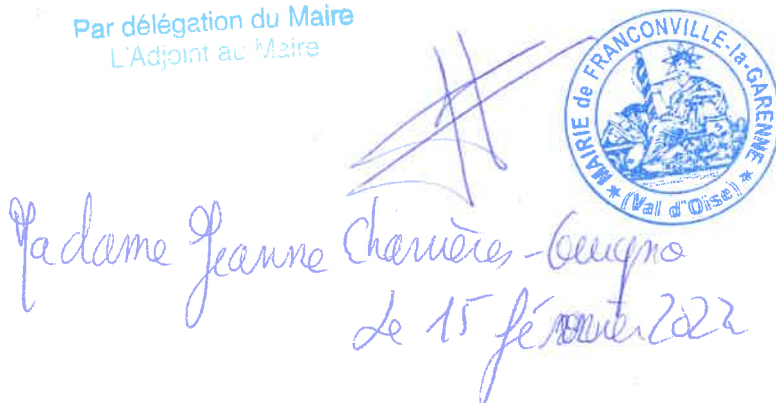 Par délégation du Maire
L'Adjoint au Maire
MAIRIE de FRANCONVILLE-la-GARENNE
(Val d'Oise)
Madame Jeanne Charrières-Guigno
Le 15 février 2022